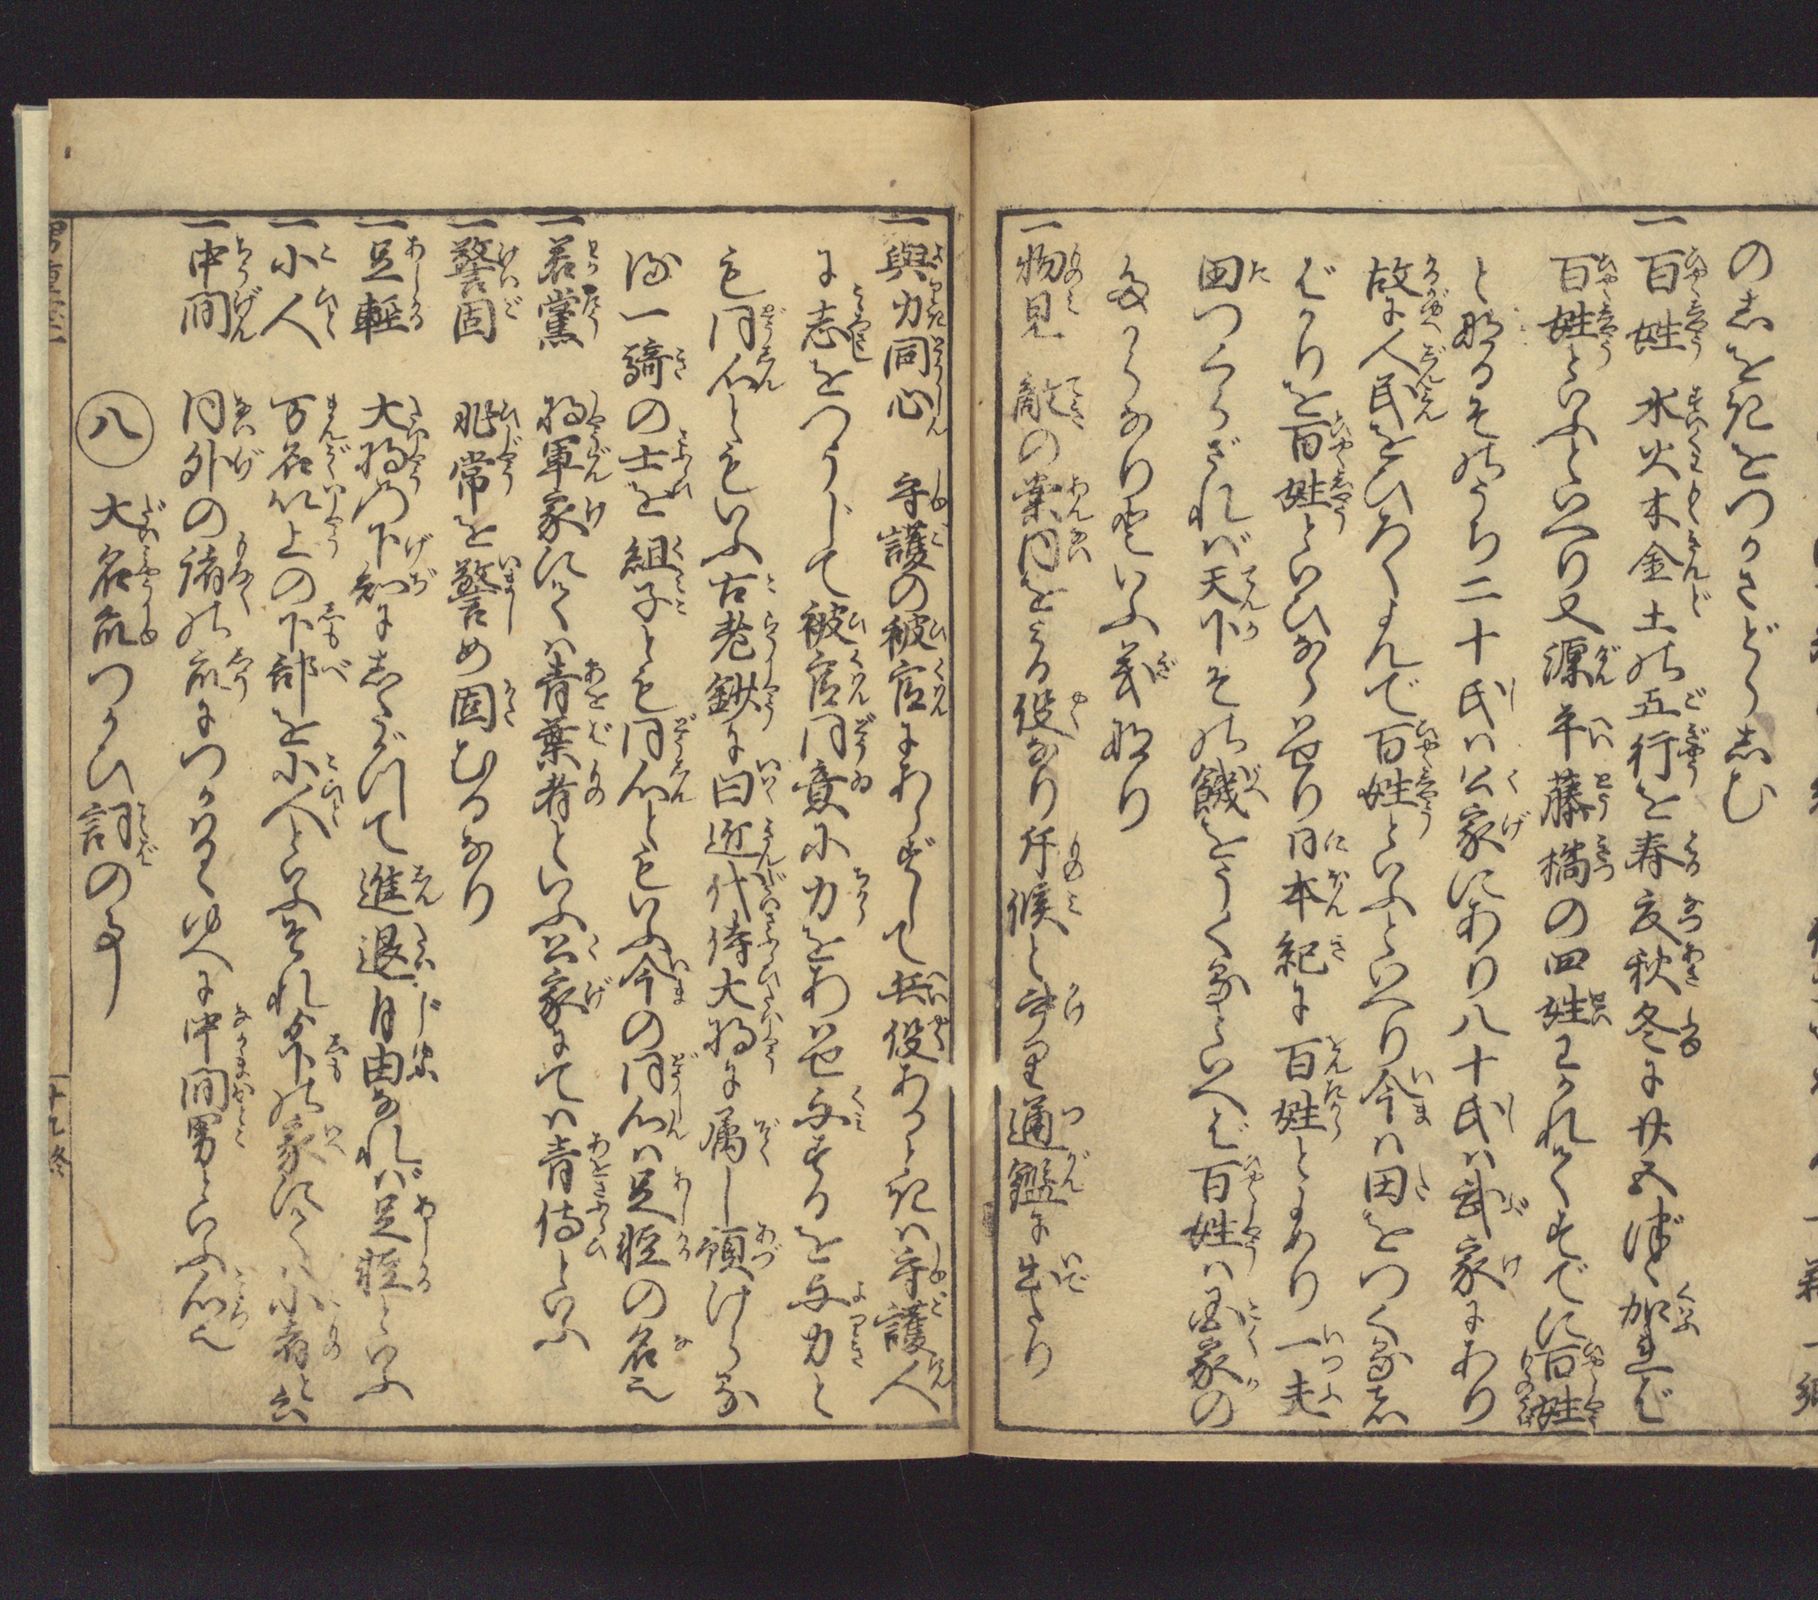 のしをきをつかさどらしむ
一百姓 水火木金土の五行を春夏秋冬に廿五づゝ加れば
百姓といふといへり又源平藤橘の四姓わかれてすでに百姓
となるそのうち二十氏は公家にあり八十氏は武家にあり
故に人民をひろくよんで百姓といふといへり今は田をつくるもの
ばかりを百姓といひならはせり日本紀に百姓とよめり一夫
田つくらざれば天下その餓をうくるといへば百姓は国家の
たからなりといふ義なり
一物見 敵の案内をみる役なり斥候とかけり通鑑に出たり
一與力同心 守護の被官にあらずして兵役あるときは守護人
に志をつうじて被官同意に力をあはせ与するを与力と
も同心とももいふ古老鈔に曰近代侍大将に属し預けらるゝ
一騎の士を組子とも同心とももいふ今の同心は足軽の名也
一若黨 将軍家にては青葉者といふ公家にては青侍といふ
一警固 非常を警め固むるなり
一足軽 大将の下知にしたがつて進退自由なれば足軽といふ
一小人 万石以上の下部を小人といふそれ以下の家にては小者と云
一中間 内外の諸の衆につかはるゝゆへに中間男といふ心也
八 大名衆つかひ詞の事